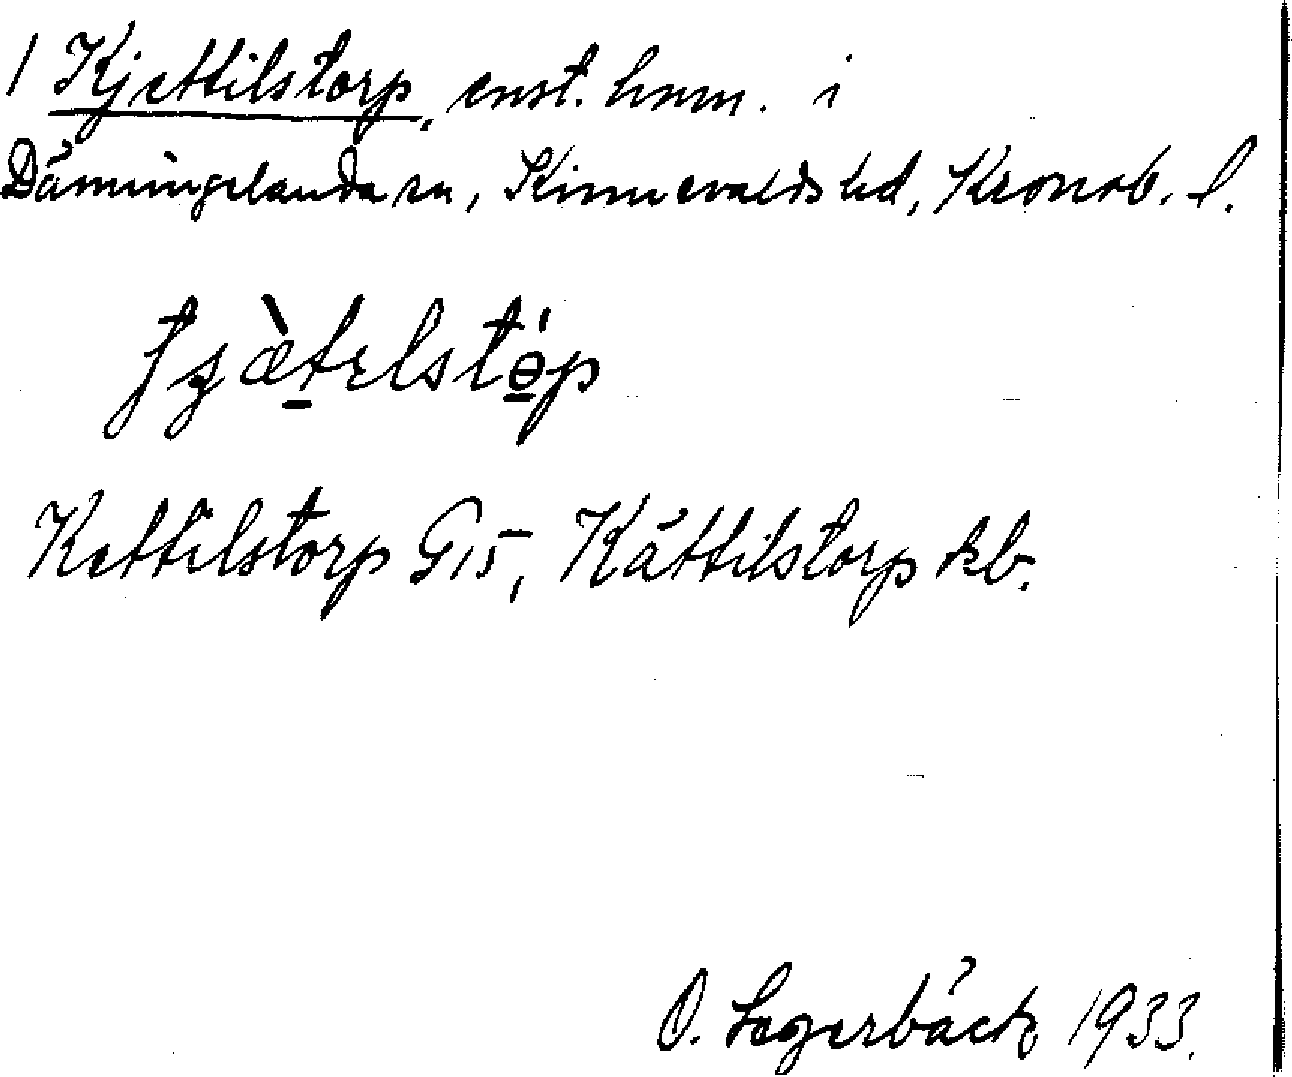 1 Kjettilstorp, enst. hmn. i
Dänningelanda sn, Kinnevalds hd, Kronob. l.
Kettilstorp G15, Kättilstorp kb.
O. Lagerbäck 1933.